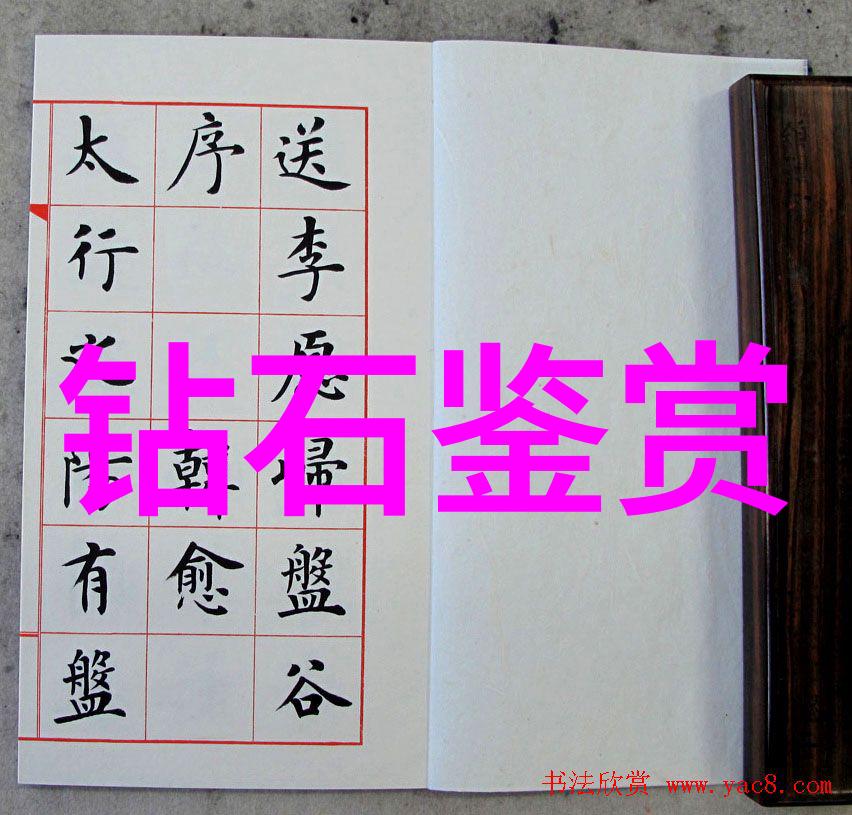 送李愿歸盤谷
序 韓愈
太行之陽有盤
钻石鉴赏
书法欣赏 www.yac8.com